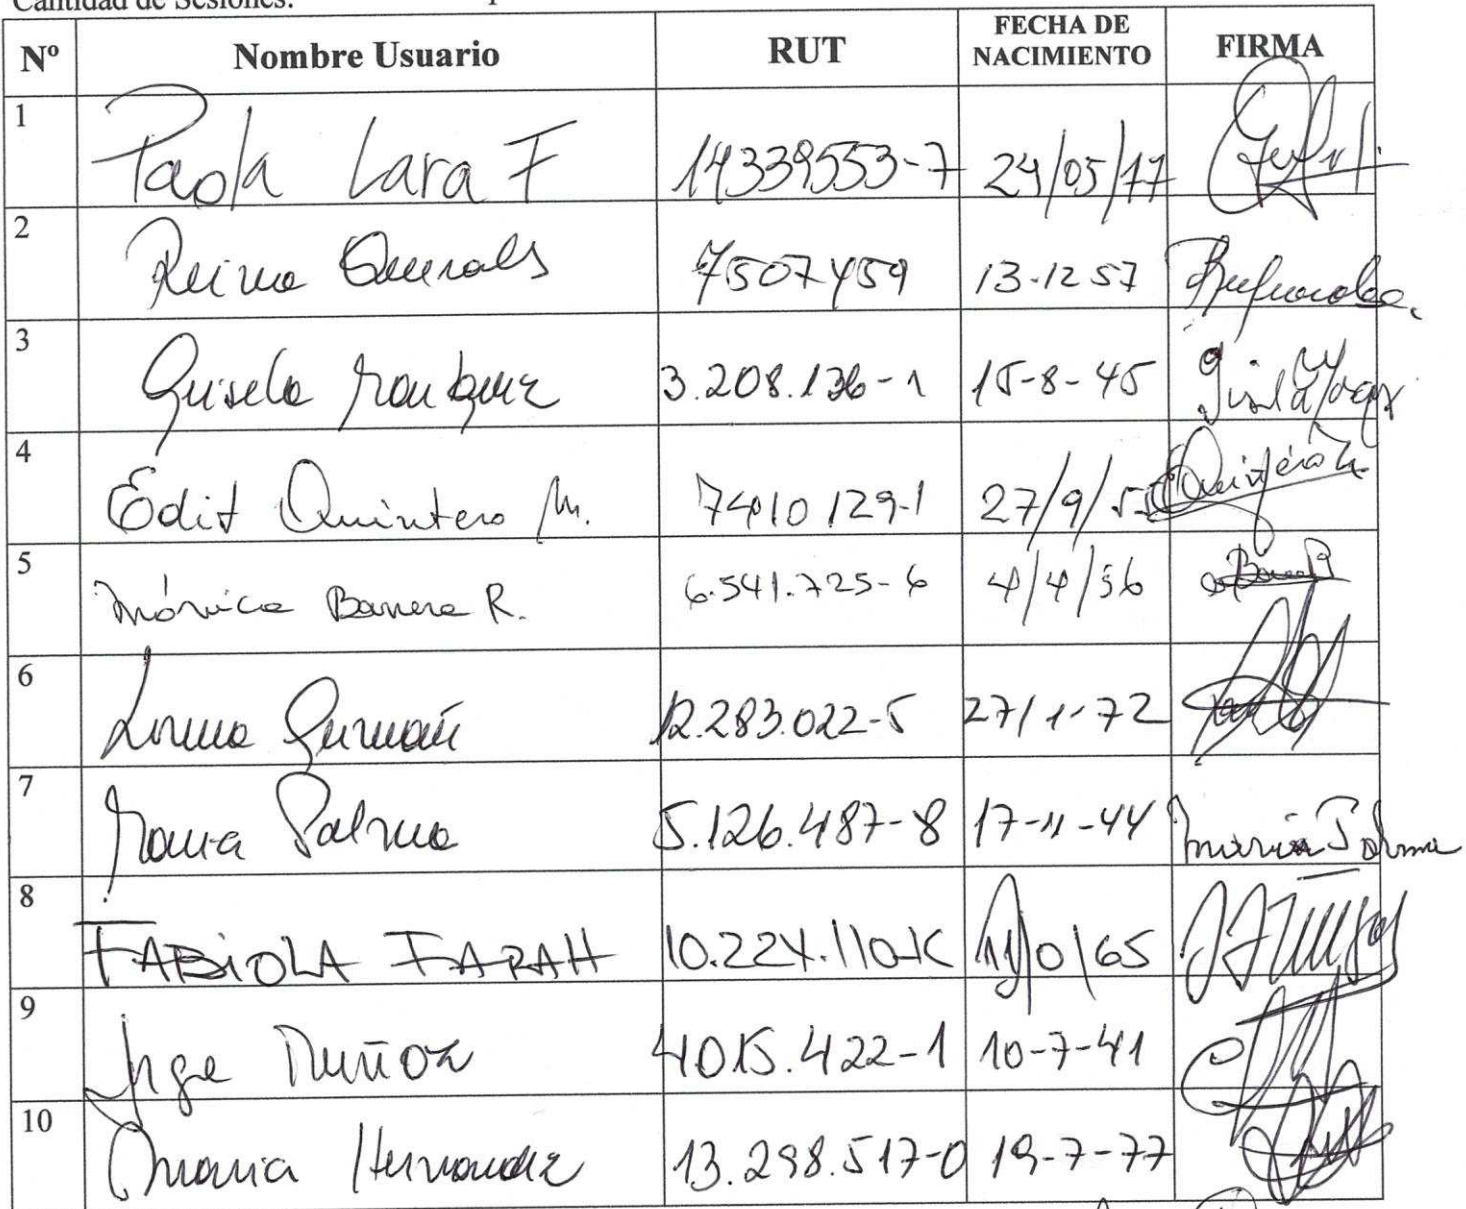 Cantidad de Sesiones:
Nº Nombre Usuario RUT FECHA DE NACIMIENTO FIRMA
1 Paola Lara F 14339553-7 24/05/77
2 Reima 7507459 13-12 57
3 Gisela 3.208.136-1 15-8-45
4 Edit Quintero M. 7410129-1 27/9/5 Quintero
5 Mónica Barrera R. 6.541.725-6 4/4/56
6 Lorena Guzmán 12.283.022-5 27/1-72
7 Maria Palma 5.126.487-8 17-11-44 maria Palma
8 FABiOLA FARAH 10.224.110-K /65
9 Jorge Muñoz 4015.422-1 10-7-41
10 Maria Hernandez 13.298.517-0 19-7-77